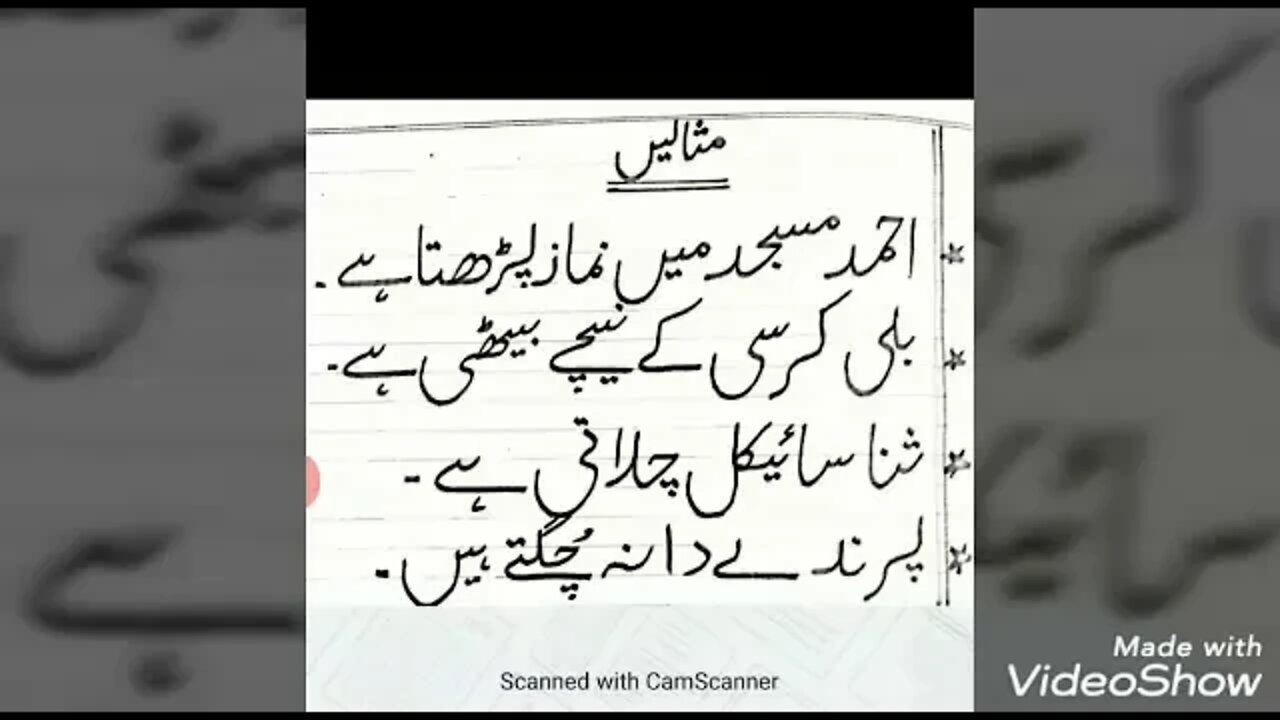 مثالیں
احمد مسجد میں نماز پڑھتا ہے۔
بلی کرسی کے نیچے بیٹھی ہے۔
ثنا سائیکل چلاتی ہے۔
پرندے دانہ چُگتے ہیں۔
Scanned with CamScanner
Made with
VideoShow